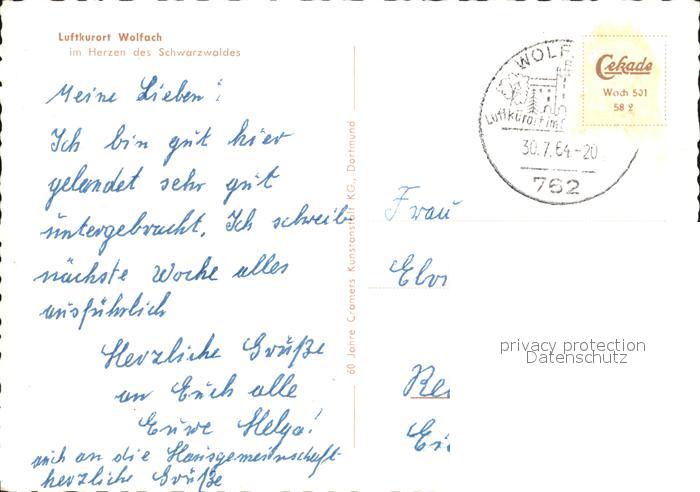 Luftkurort Wolfach
im Herzen des Schwarzwaldes
Meine Lieben!
Ich bin gut hier
gelandet sehr gut
untergebracht. Ich schreibe
nächste Woche alles
ausführlich
Herzliche Grüße
an Euch alle
Euere Helga!
auch an die Hausgemeinschaft
herzliche Grüße
60 Jahre Cramers Kunstanstalt KG., Dortmund
WOLF
Luftkurort im
30.7.64.-20
762
Cekade
Wach 501
58 2
Frau
privacy protection
Datenschutz